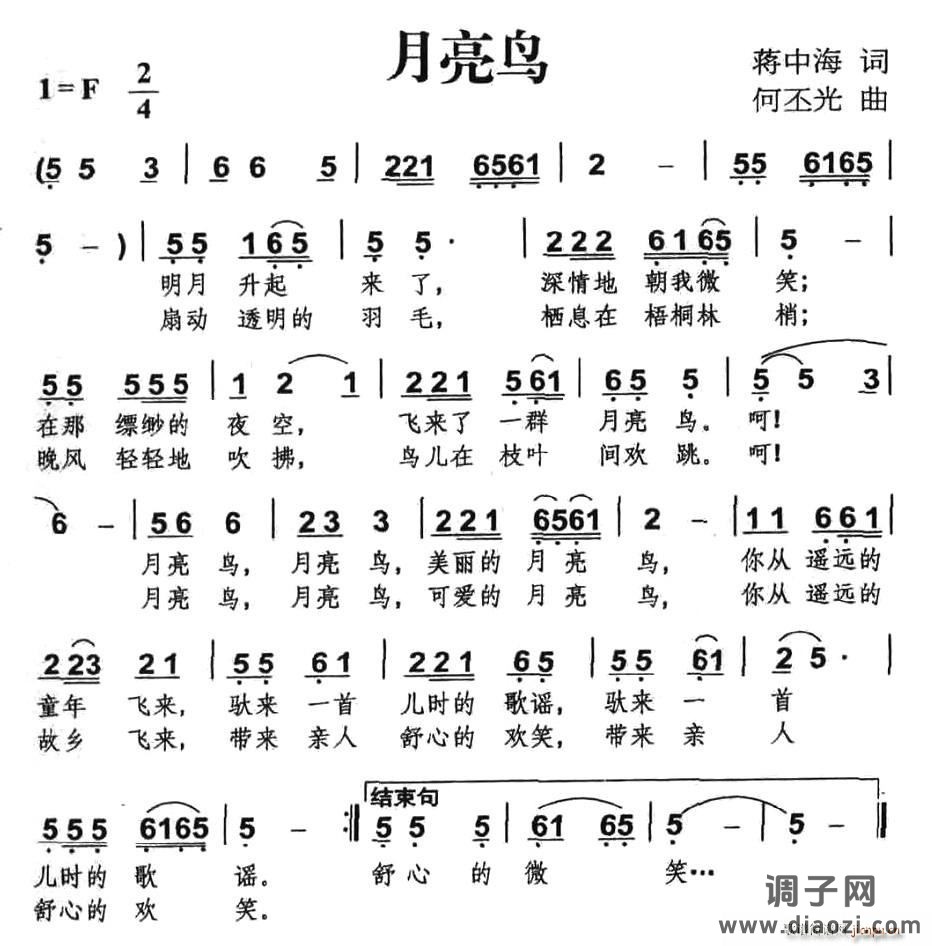 月亮鸟
1=F 2/4
蒋中海 词
何丕光 曲
(5 5 3 | 6 6 5 | 221 6561 | 2 – | 55 6165 |
5 – ) | 55 165 | 5 5· | 222 6165 | 5 – |
明月 升起 来了, 深情地 朝我微 笑;
扇动 透明的 羽毛, 栖息在 梧桐林 梢;
55 555 | 1 2 1 | 221 561 | 65 5 | 5 5 3 |
在那 缥缈的 夜空, 飞来了 一群 月亮鸟。呵!
晚风 轻轻地 吹拂, 鸟儿在 枝叶 间欢跳。呵!
6 – | 56 6 | 23 3 | 221 6561 | 2 – | 11 661 |
月亮鸟, 月亮鸟, 美丽的 月亮 鸟, 你从 遥远的
月亮鸟, 月亮鸟, 可爱的 月亮 鸟, 你从 遥远的
223 21 | 55 61 | 221 65 | 55 61 | 2 5· |
童年 飞来, 驮来 一首 儿时的 歌谣, 驮来 一 首
故乡 飞来, 带来 亲人 舒心的 欢笑, 带来 亲 人
555 6165 | 5 – :| 结束句 5 5 5 | 61 65 | 5 – | 5 – |
儿时的 歌 谣。 舒心 的 微 笑…
舒心的 欢 笑。
调子网
www.diaozi.com